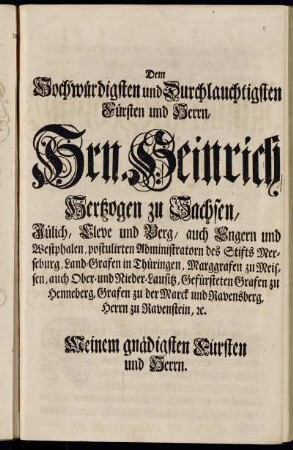 Dem
Hochwürdigsten und Durchlauchtigsten
Fürsten und Herrn,
Hrn. Heinrich
Hertzogen zu Sachsen,
Jülich, Cleve und Berg, auch Engern und
Westphalen, postulirten Administratorn des Stifts Mer-
seburg, Land-Grafen in Thüringen, Marggrafen zu Meis-
sen, auch Ober- und Nieder-Lausitz, Gefürsteten Grafen zu
Henneberg, Grafen zu der Marck und Ravensberg,
Herrn zu Ravenstein, ꝛc.
Meinem gnädigsten Fürsten
und Herrn.